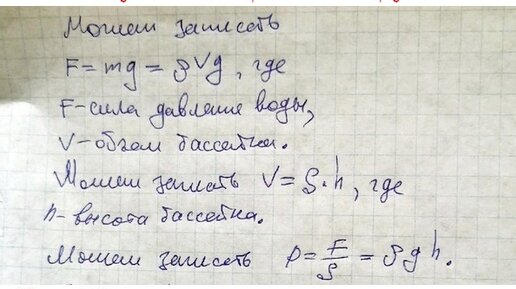 Можем записать
F = mg = ρVg, где
F - сила давление воды,
V - объем бассейна.
Можем записать V = S·h, где
h - высота бассейна.
Можем записать p = F/S = ρgh.